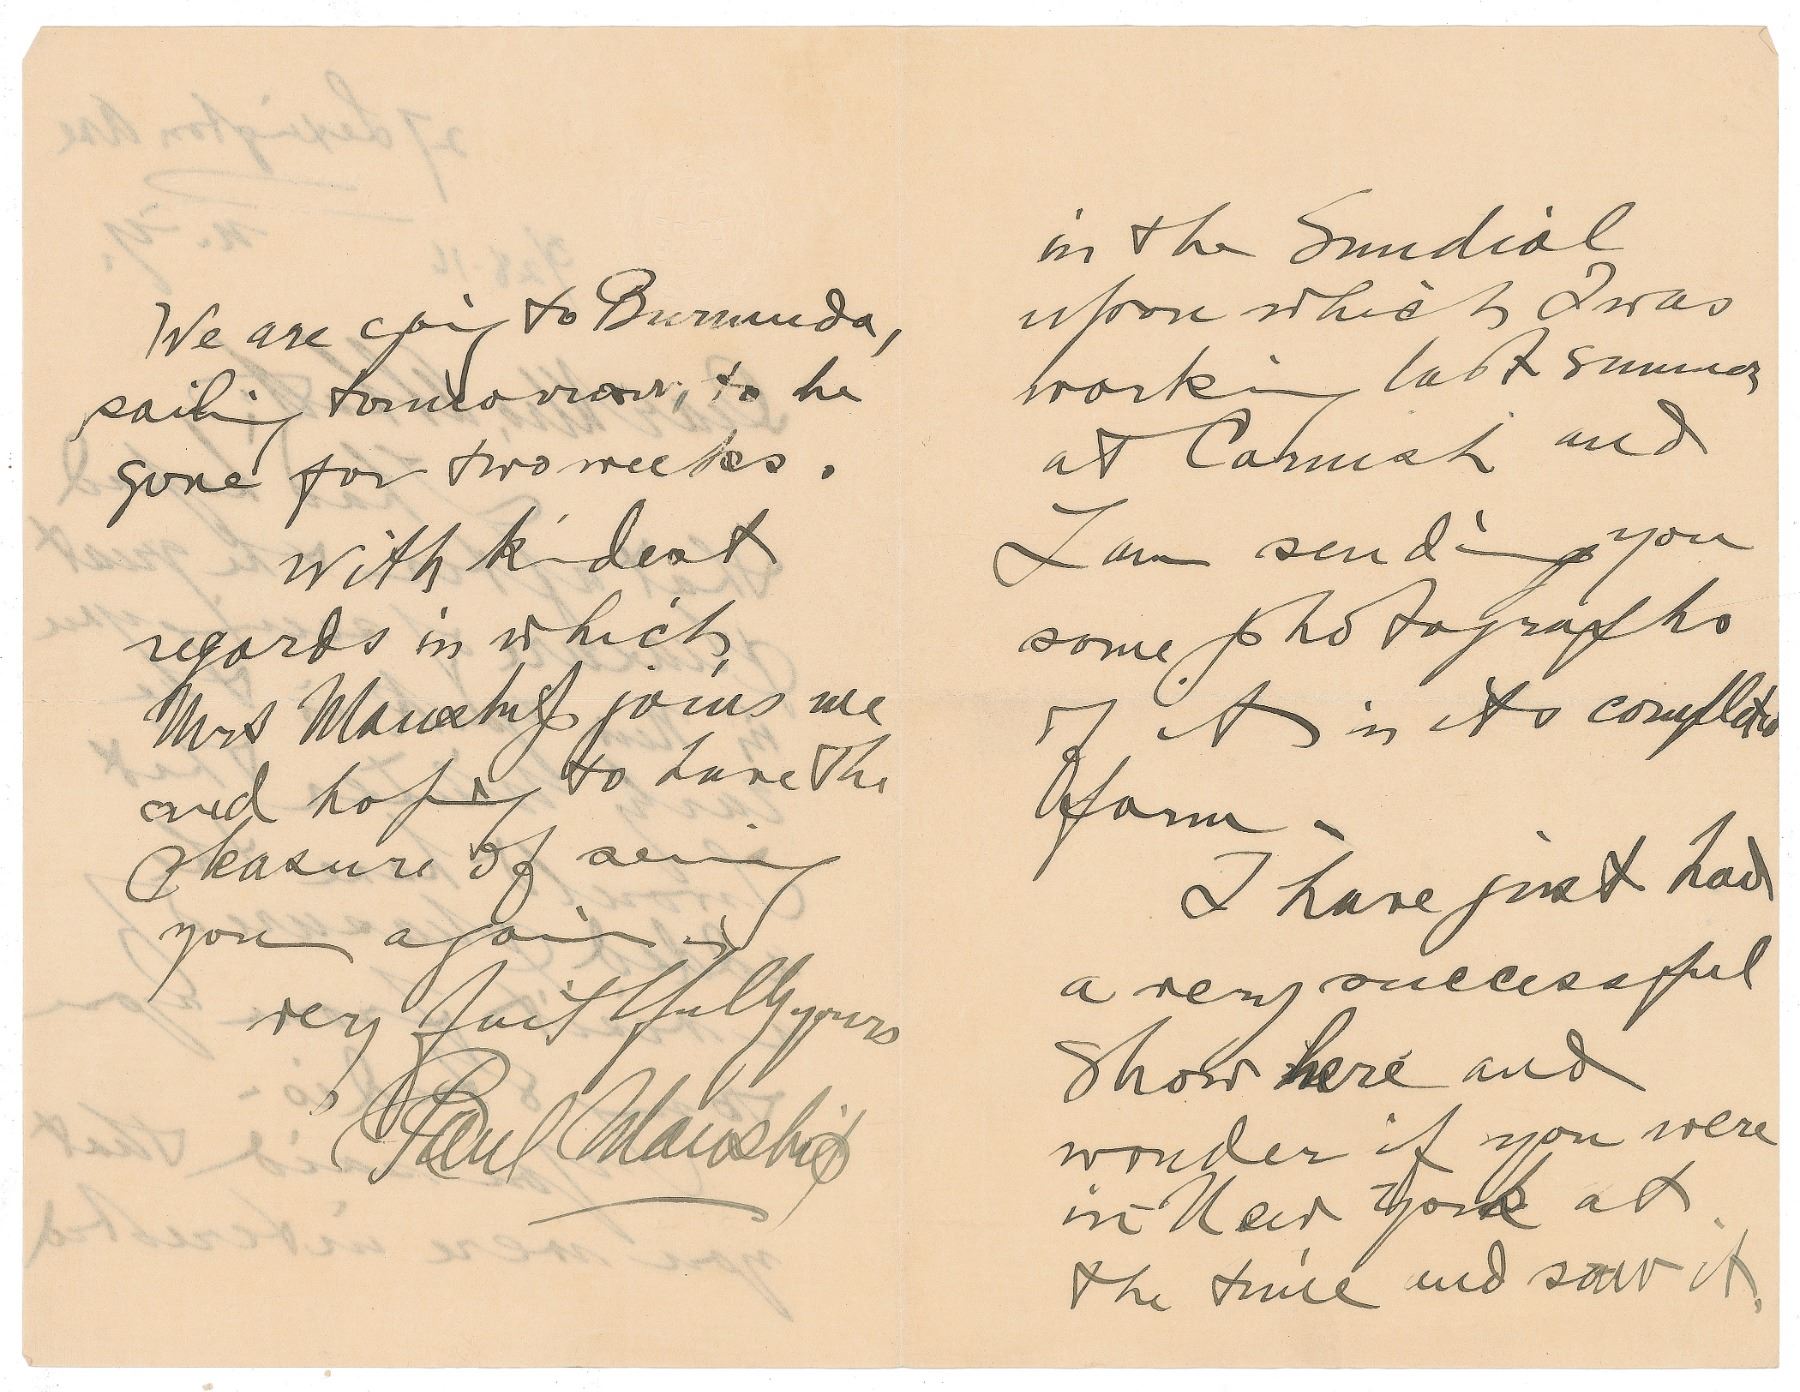 in the Sundial
upon which I was
working last summer
at Cornish and
I am sending you
some photographs
of it in its completed
form.
I have just had
a very successful
show here and
wonder if you were
in New York at
the time and saw it.
We are going to Burmuda,
sailing tomorrow, to be
gone for two weeks.
With kindest
regards in which
Mrs Manship joins me
and hoping to have the
pleasure of seeing
you again
very faithfully yours
Paul Manship
27 Lexington Ave
N.Y.
Feb 16
you were interested